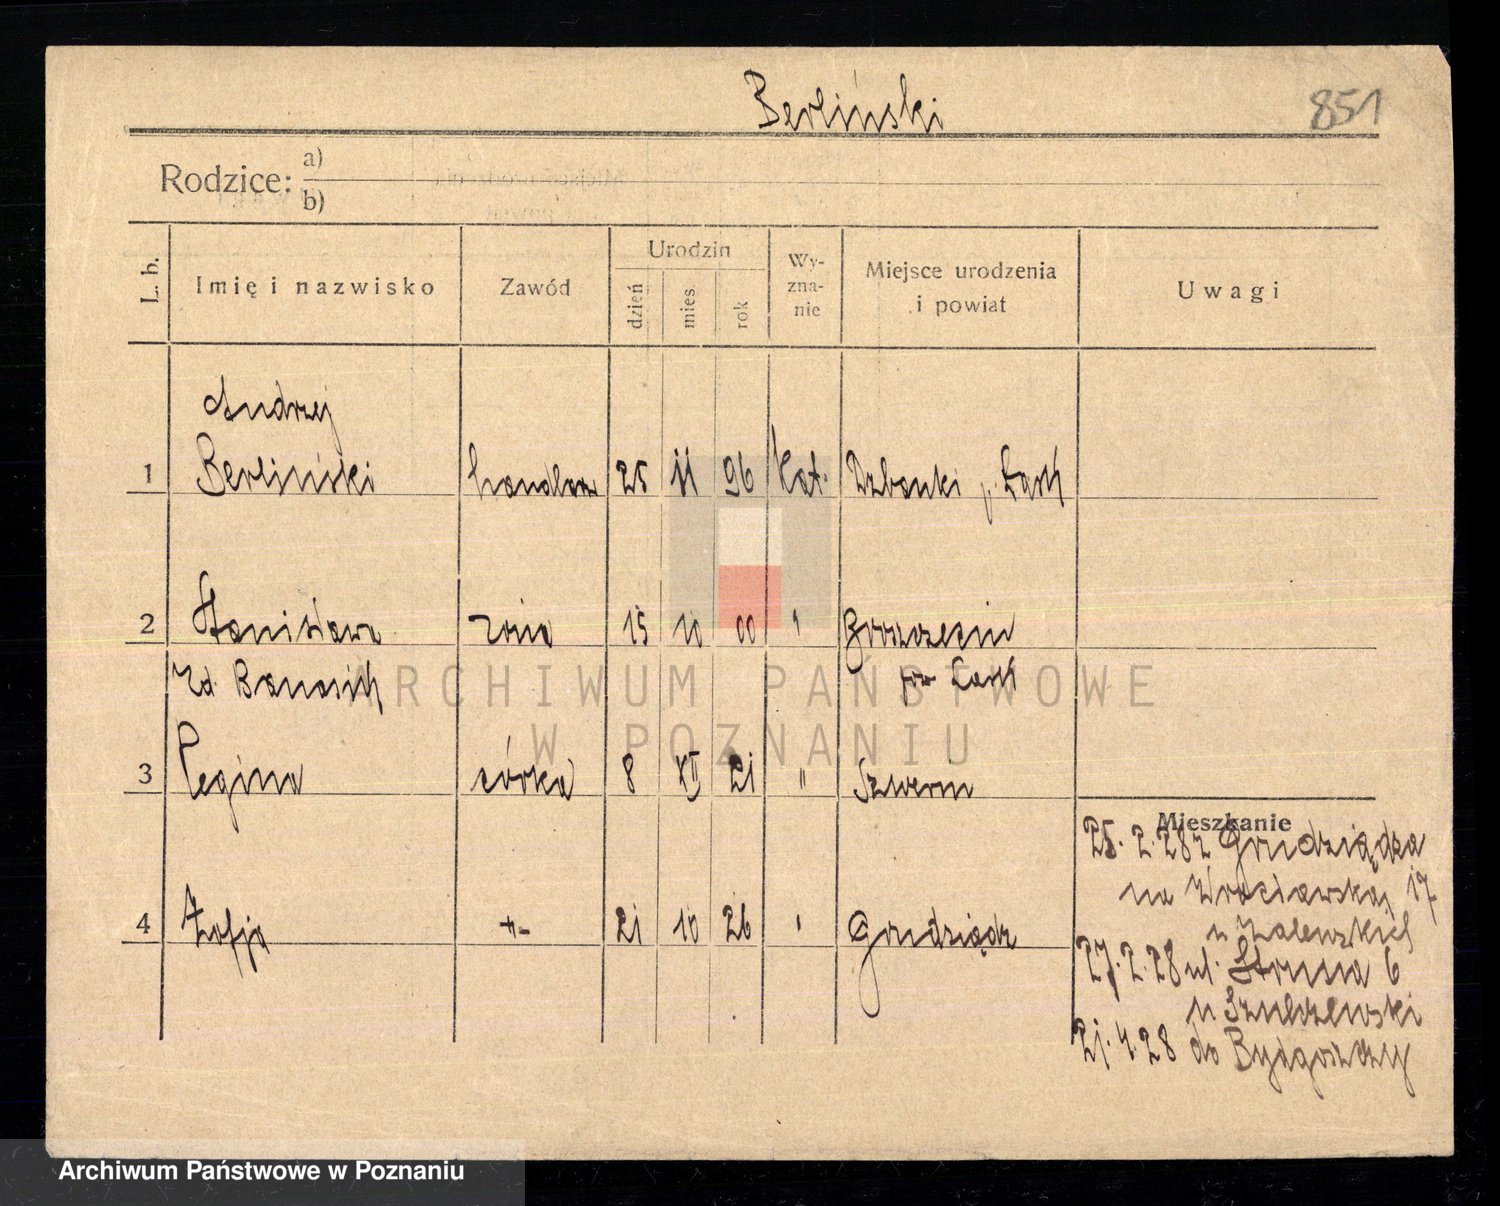 Berliński 851
Rodzice: a)
b)
L. b. Imię i nazwisko Zawód Urodzin dzień mies rok Wy-zna-nie Miejsce urodzenia i powiat Uwagi
Andrzej
1 Berliński handlarz 25 11 96 Kat. Dzbanki p. Łask
2 Stanisława żona 15 10 00 " 
zd. Banasik pow Łask
3 Regina córka 8 XI 21 " Szwerin
4 Zofja -"- 21 10 26 " Grudziądz
Mieszkanie
25. 2. 28 z Grudziądza
na Wrocławską 17
u Zalewskich
27. 2. 28 ul. 6
u
21. 4. 28 do Bydgoszczy
ARCHIWUM PAŃSTWOWE
W POZNANIU
Archiwum Państwowe w Poznaniu